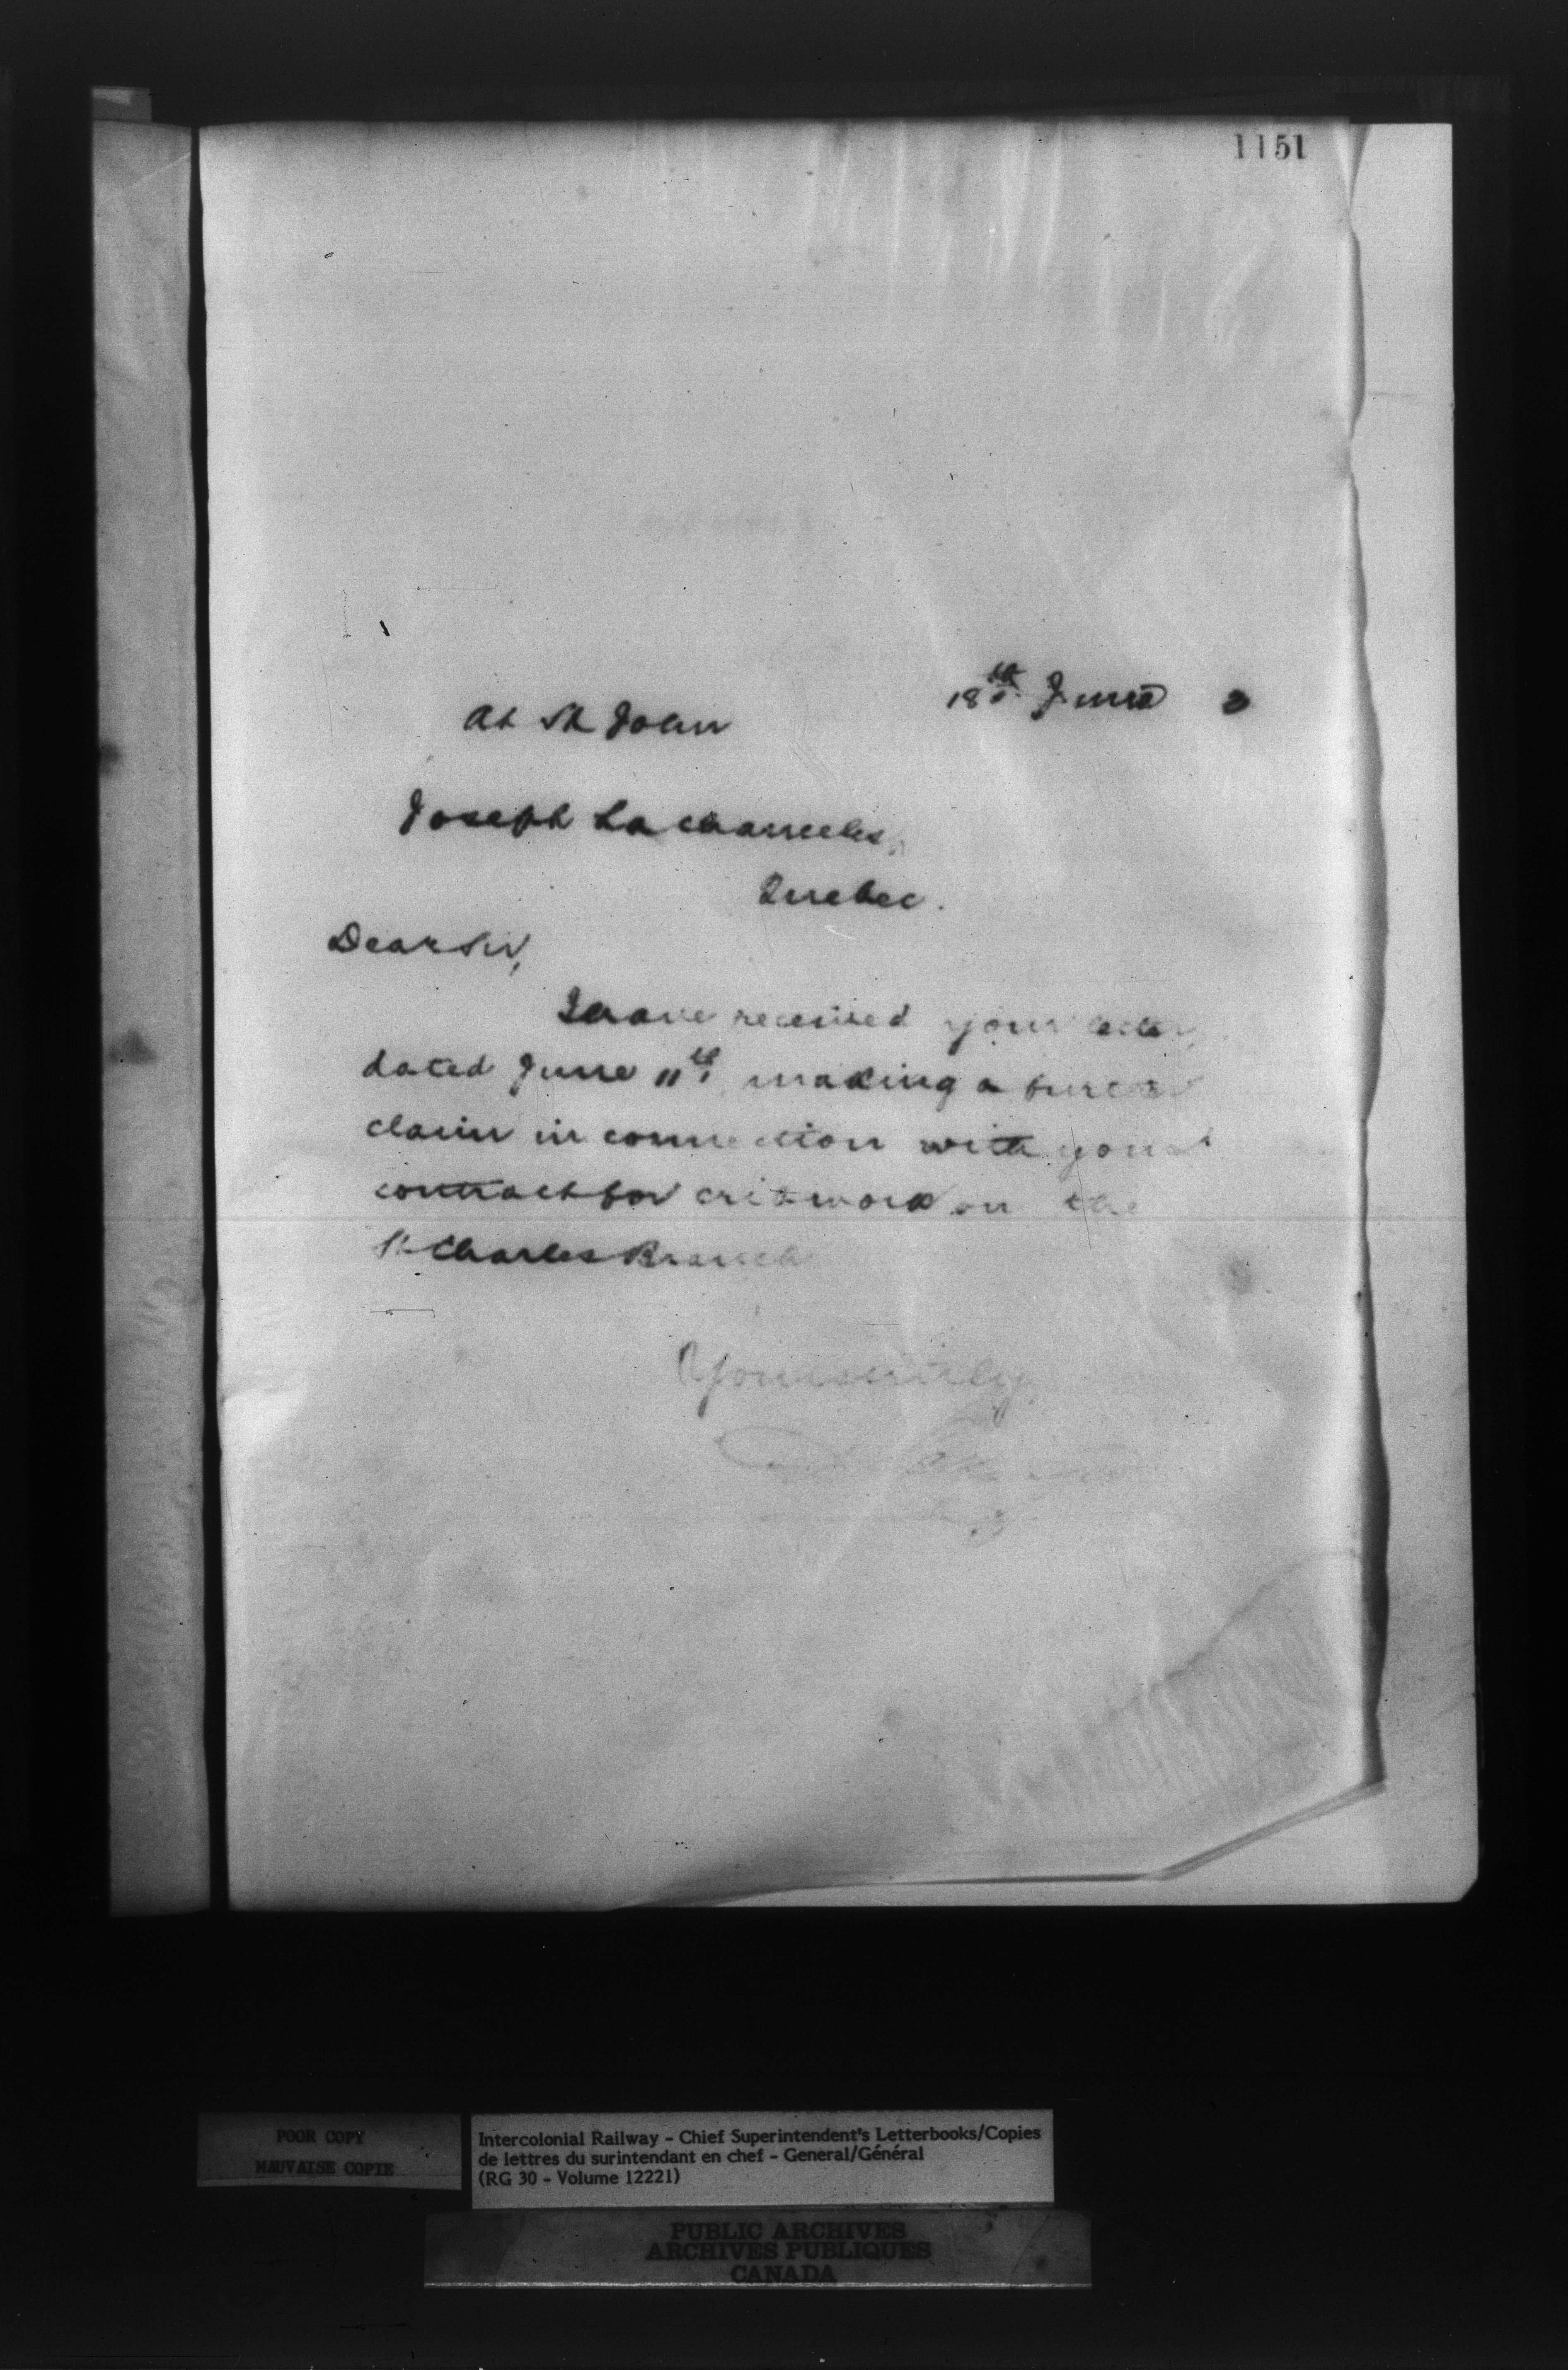 1151
18th June 3
At St John
Joseph Lachancelle,
Quebec.
Dear Sir,
I have received your letter
dated June 11th making a further
claim in connection with your
contract for cribwork on the
St Charles Branch
Yours truly
POOR COPY
MAUVAISE COPIE
Intercolonial Railway - Chief Superintendent's Letterbooks/Copies
de lettres du surintendant en chef - General/Général
(RG 30 - Volume 12221)
PUBLIC ARCHIVES
ARCHIVES PUBLIQUES
CANADA